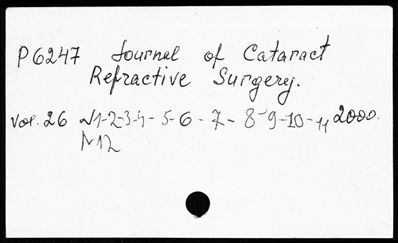 P6247 Journal of Cataract
Refractive Surgery.
Vol. 26 N1-2-3-4-5-6-7-8-9-10-11 2000.
N12